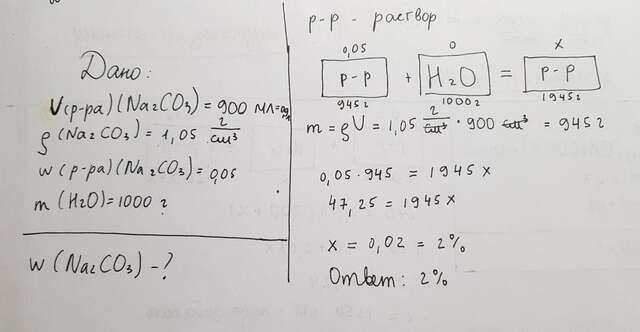 Дано:
V(р-ра)(Na₂CO₃) = 900 мл = 0,9 л
ρ(Na₂CO₃) = 1,05 г/см³
w(р-ра)(Na₂CO₃) = 0,05
m(H₂O) = 1000 г
w(Na₂CO₃) - ?
р-р - раствор
0,05 0 x
р-р + H₂O = р-р
945 г 1000 г 1945 г
m = ρV = 1,05 г/см³ · 900 см³ = 945 г
0,05 · 945 = 1945 x
47,25 = 1945 x
x = 0,02 = 2%
Ответ: 2%